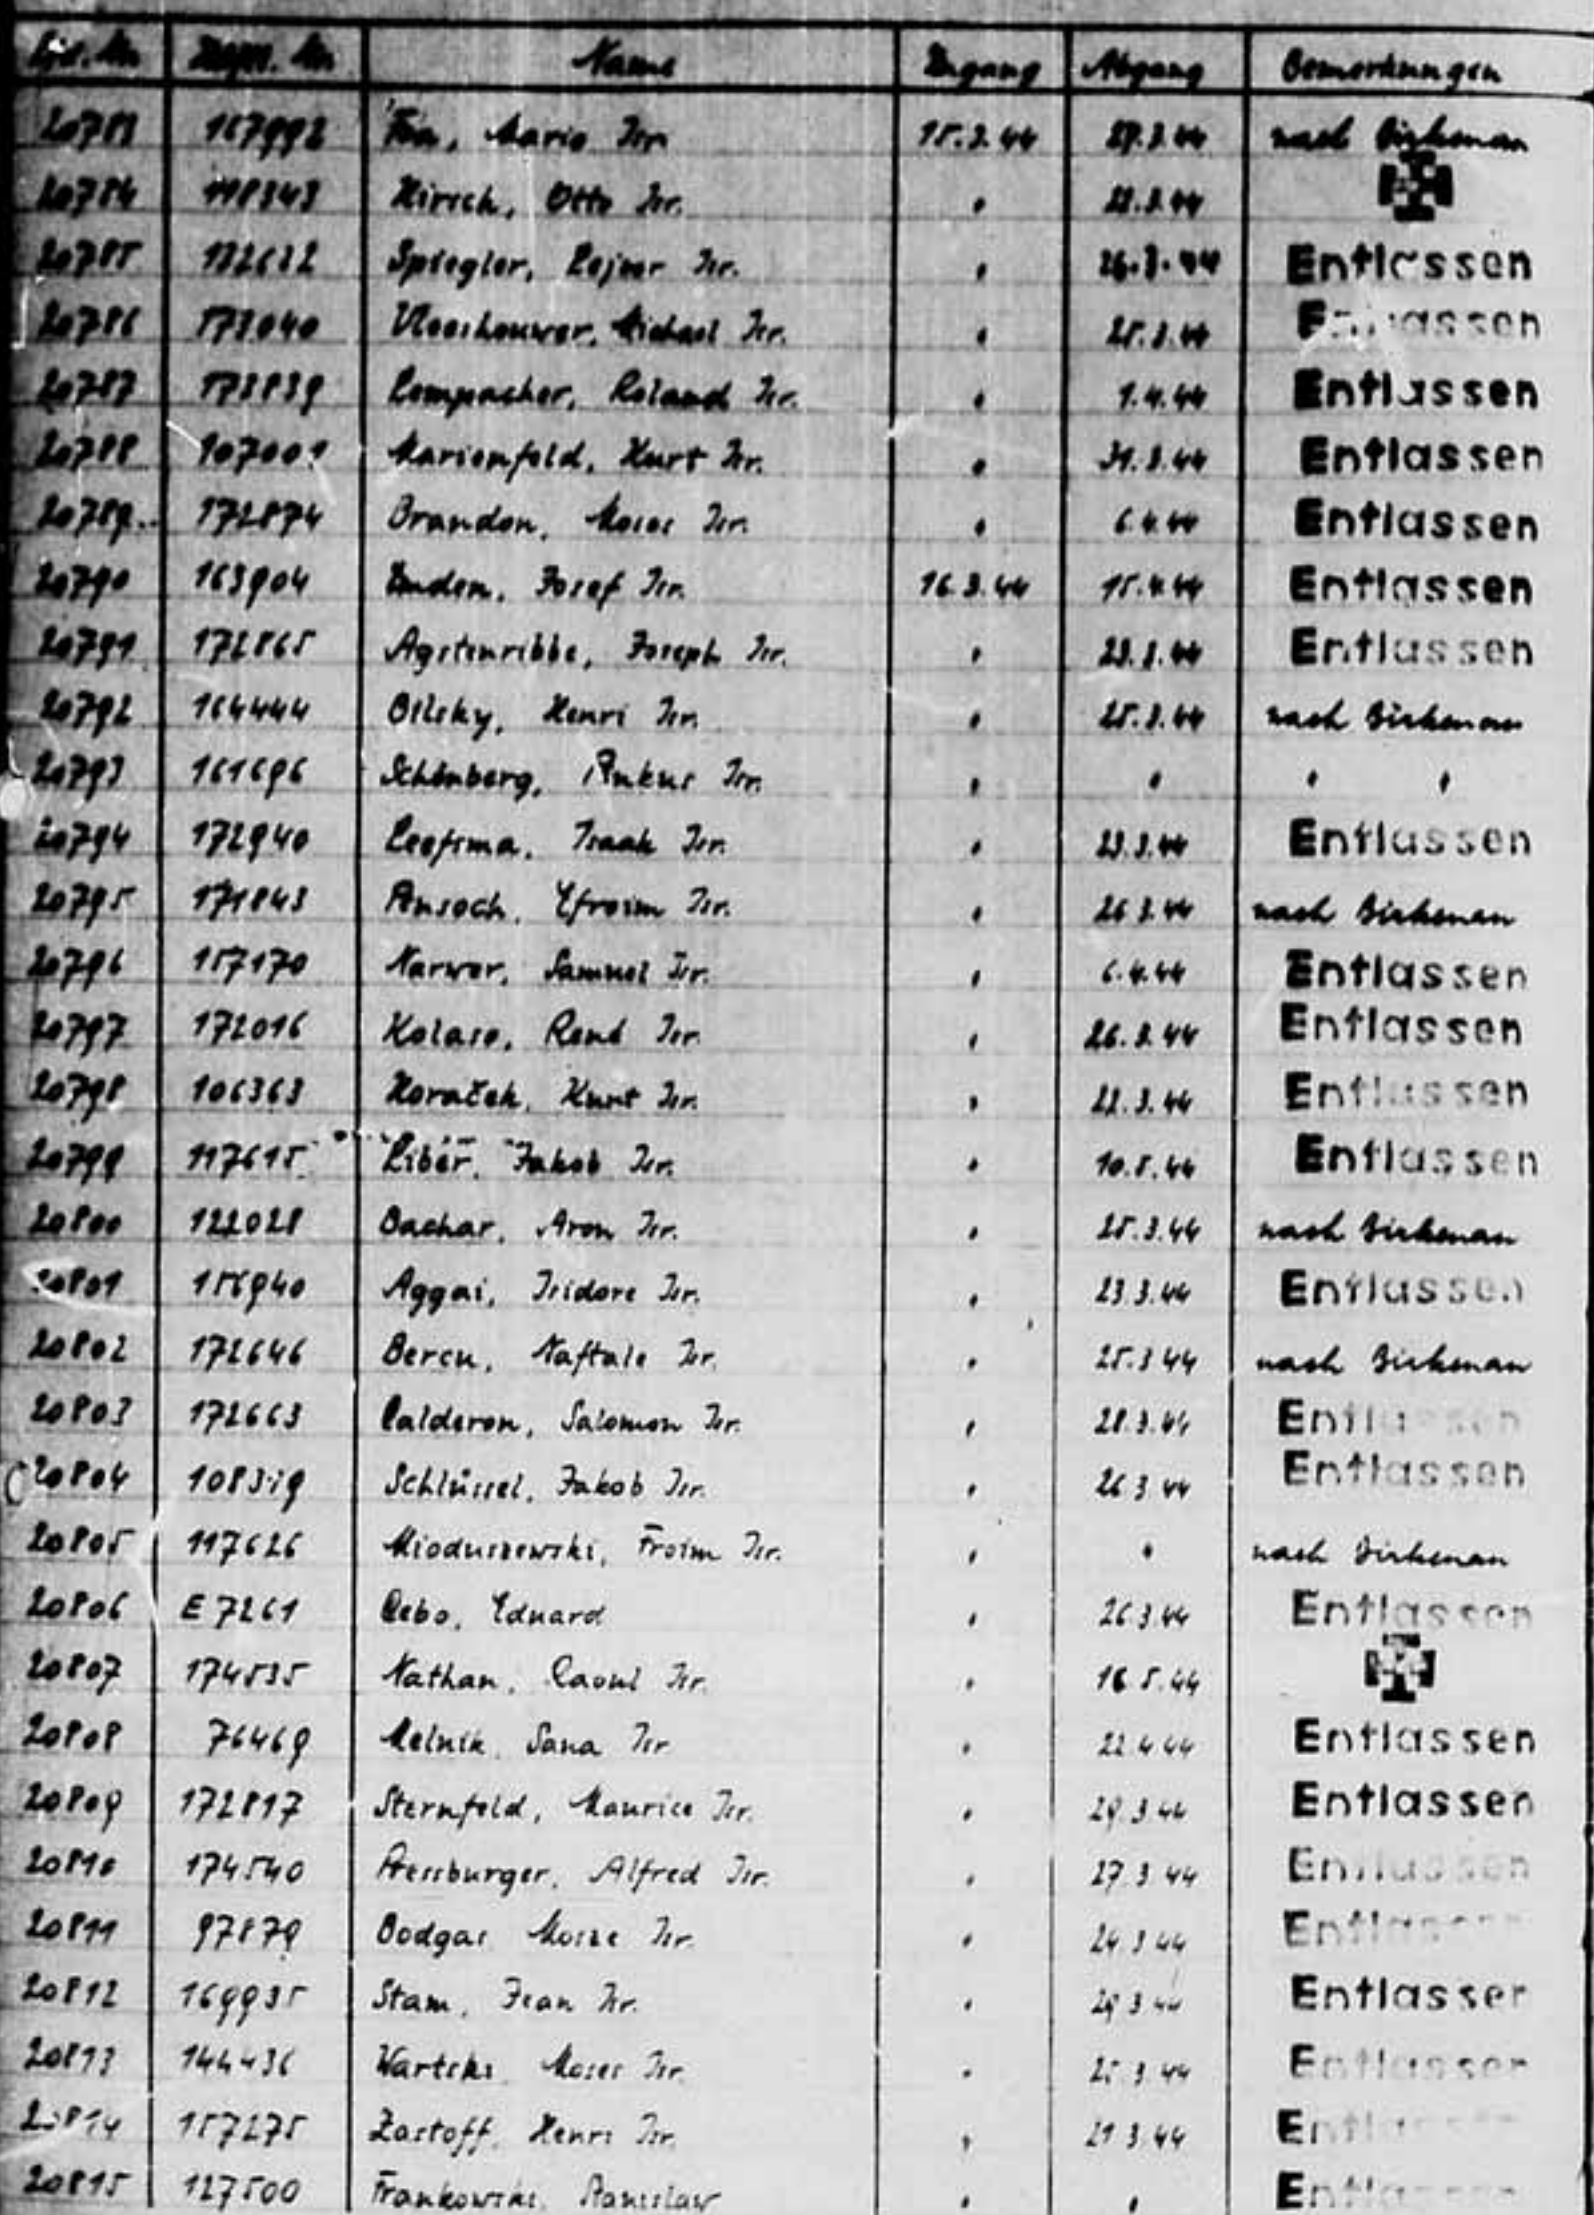 Lfd. Nr. Name Zugang Abgang Bemerkungen
20783 167992 Mario Isr. 15.3.44 27.3.44 nach Birkenau
20784 Hirsch, Otto Isr. " 22.3.44
20785 172632 Spiegler, Lejser Isr. " 26.3.44 Entlassen
20786 173040 Vleeshouwer, Michael Isr. " 25.3.44 Entlassen
20787 173839 Lempacher, Roland Isr. " 1.4.44 Entlassen
20788 107001 Marienfeld, Kurt Isr. " 31.3.44 Entlassen
20789 172874 Brandon, Moses Isr. " 6.4.44 Entlassen
20790 163904 Emden, Josef Isr. 16.3.44 15.4.44 Entlassen
20791 172865 Agstenribbe, Joseph Isr. " 23.3.44 Entlassen
20792 164444 Bilsky, Henri Isr. " 25.3.44 nach Birkenau
20793 161696 Schönberg, Pinkus Isr. " " " "
20794 172940 Leefsma, Isaak Isr. " 23.3.44 Entlassen
20795 171843 Ansoch, Efroim Isr. " 26.3.44 nach Birkenau
20796 157170 Narwer, Samuel Isr. " 6.4.44 Entlassen
20797 172016 Kolare, René Isr. " 26.3.44 Entlassen
20798 106363 Horaček, Kurt Isr. " 22.3.44 Entlassen
20799 117615 Liber, Jakob Isr. " 10.5.44 Entlassen
20800 122028 Bachar, Aron Isr. " 25.3.44 nach Birkenau
20801 156940 Aggai, Isidore Isr. " 23.3.44 Entlassen
20802 172646 Bercu, Naftale Isr. " 25.3.44 nach Birkenau
20803 172663 Calderon, Salomon Isr. " 28.3.44 Entlassen
20804 108319 Schlüssel, Jakob Isr. " 26.3.44 Entlassen
20805 117626 Mioduszewski, Froim Isr. " " nach Birkenau
20806 E 7261 Cebo, Eduard " 26.3.44 Entlassen
20807 174535 Nathan, Raoul Isr. " 16.5.44
20808 76469 Melnik, Sana Isr. " 22.4.44 Entlassen
20809 172817 Sternfeld, Maurice Isr. " 29.3.44 Entlassen
20810 174540 Pressburger, Alfred Isr. " 27.3.44 Entlassen
20811 97879 Bodgas Mosze Isr. " 24.3.44 Entlassen
20812 169935 Stam, Jean Isr. " 29.3.44 Entlassen
20813 144436 Wartski Moses Isr. " 25.3.44 Entlassen
20814 157275 Zastoff, Henri Isr. " 21.3.44 Entlassen
20815 127500 Frankowski, Stanislaw " " Entlassen